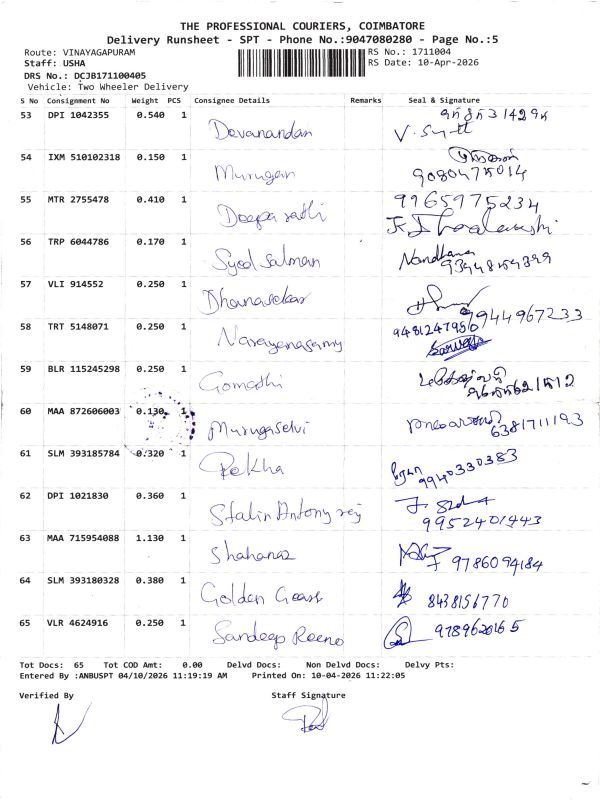 THE PROFESSIONAL COURIERS, COIMBATORE
Delivery Runsheet - SPT - Phone No.:9047080280 - Page No.:5
Route: VINAYAGAPURAM
RS No.: 1711004
Staff: USHA
RS Date: 10-Apr-2026
DRS No.: DCJB171100405
Vehicle: Two Wheeler Delivery
S No Consignment No Weight PCS Consignee Details Remarks Seal & Signature
53 DPI 1042355 0.540 1 Devanandan
54 IXM 510102318 0.150 1 Murugan
55 MTR 2755478 0.410 1 Deepa rathi 9965975234
56 TRP 6044786 0.170 1 Syed Salman Nandhana
57 VLI 914552 0.250 1 Dhanasekar 9944967233
58 TRT 5148071 0.250 1 Narayanasamy 9481247950
59 BLR 115245298 0.250 1 Gomathi
60 MAA 872606003 0.130 1 Murugaselvi 6381711193
61 SLM 393185784 0.320 1 Rekha ரேகா 9940330383
62 DPI 1021830 0.360 1 Stalin Antony rej 9952401443
63 MAA 715954088 1.130 1 Shahanaz 9786094184
64 SLM 393180328 0.380 1 Golden Gears 8438156770
65 VLR 4624916 0.250 1 Sandeep Reeno 9789620165
Tot Docs: 65 Tot COD Amt: 0.00 Delvd Docs: Non Delvd Docs: Delvy Pts:
Entered By :ANBUSPT 04/10/2026 11:19:19 AM Printed On: 10-04-2026 11:22:05
Verified By Staff Signature